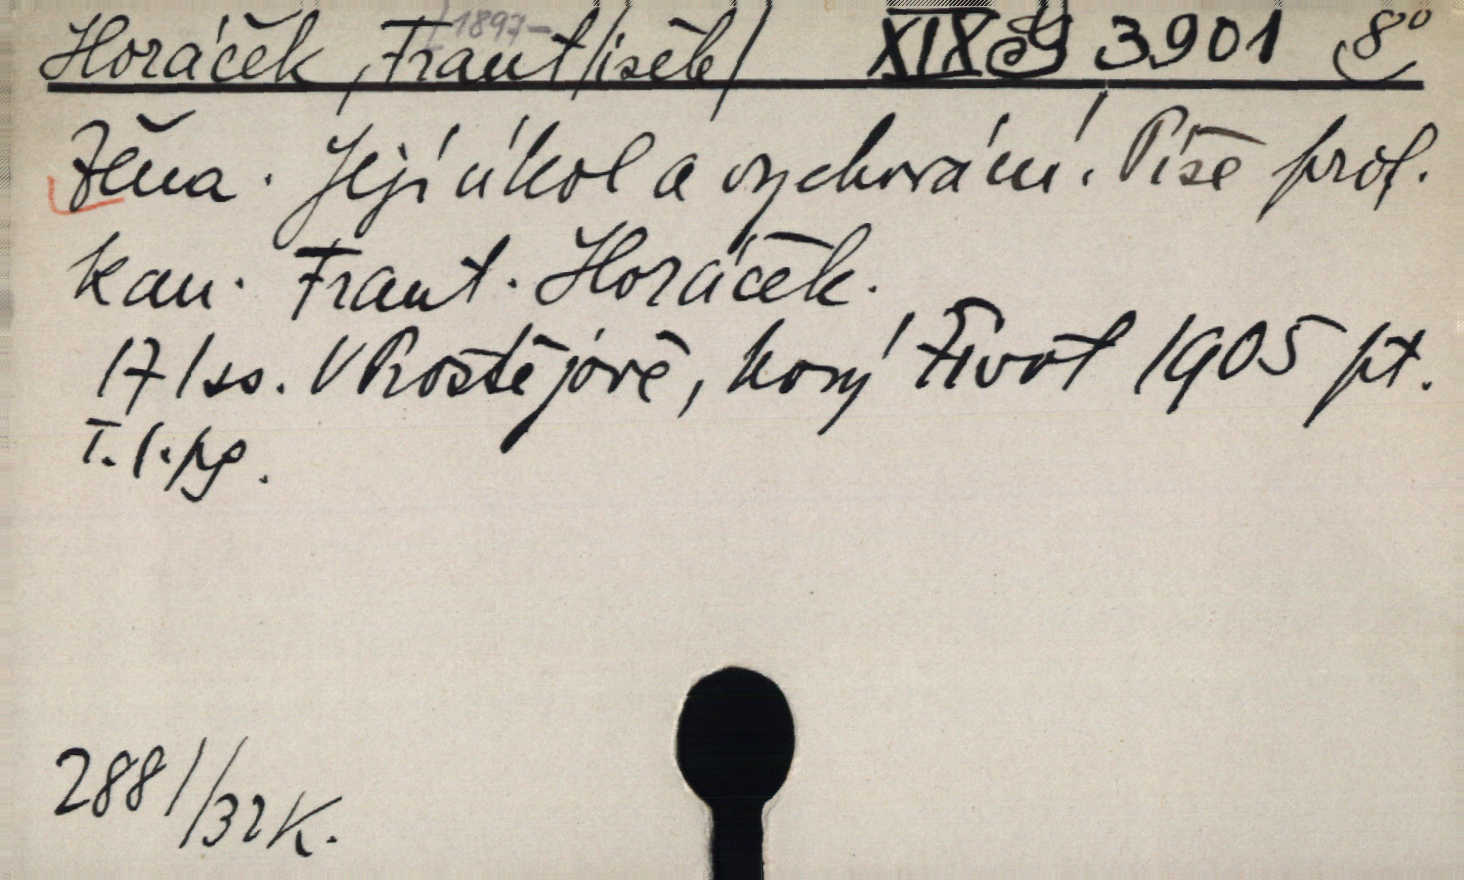 Horáček, Frant/išek/ XIX G 3901 8°
1897-
Žena. Její úkol a vychování. Píše prof.
kan. Frant. Horáček.
171 ss. V Prostějově, Nový Život 1905 pt.
T. l. pg.
2881/32 K.